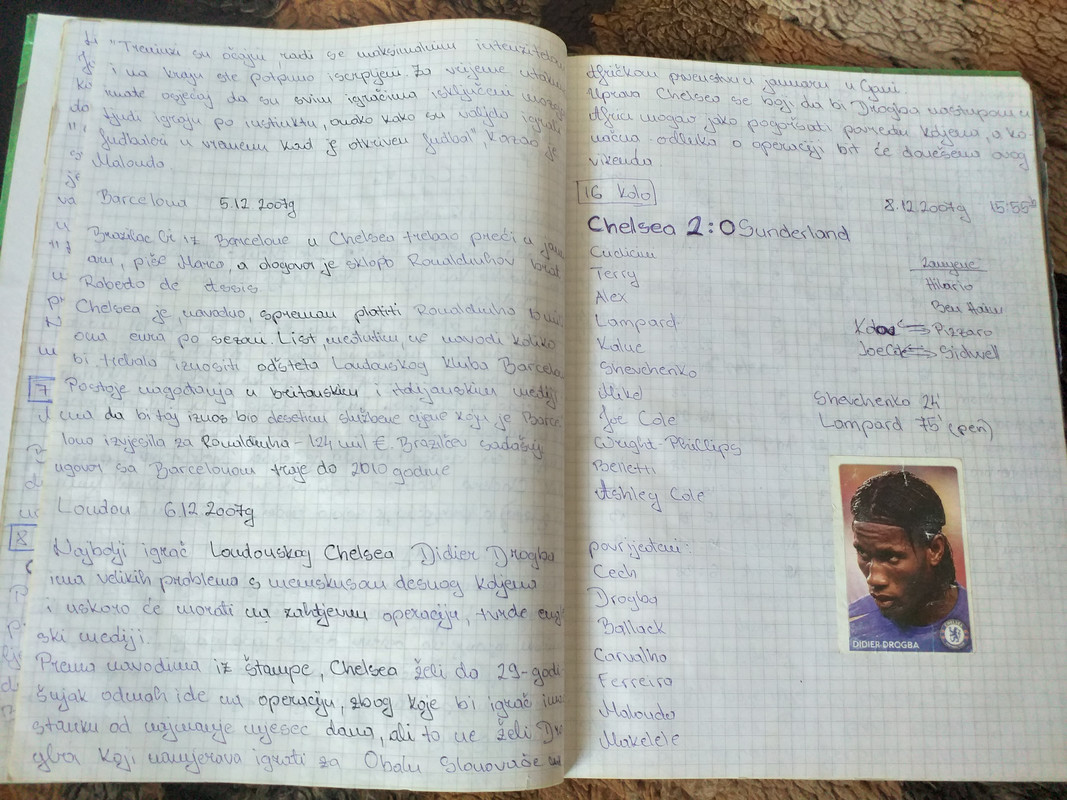 "Treninzi su očajni, radi se maksimalnim intenzitetom
i na kraju ste potpuno iscrpljeni. Za vrijeme utakmi
imate osjećaj da su svim igračima isključeni mozgo
ljudi igraju po instinktu, onako kako su valjda igrali
fudbaleri u vremenu kad je otkriven fudbal", kazao je
Malouda.
Barcelona 5.12.2007g
Brazilac će iz Barcelone u Chelsea trebao preći u janu
aru, piše Marca, a dogovor je sklopio Ronaldinhov brat
Roberto de Assis.
Chelsea je, navodno, spreman platiti Ronaldinhu
ona eura po sezoni. List, međutim, ne navodi koliko
bi trebala iznositi odšteta Londonskog kluba Barcelo
Postoje nagađanja u britanskim i italijanskim mediji
ma da bi taj iznos bio desetini službene cijene koji je Barce
lona izvjesila za Ronaldinha - 124 mil €. Brazilčev sadašnji
ugovor sa Barcelonom traje do 2010 godine
London 6.12.2007g
Najbolji igrač Londonskog Chelsea Didier Drogba
ima velikih problema s meniskusom desnog koljena
i uskoro će morati na zahtjevnu operaciju, tvrde engl
ski mediji.
Prema navodima iz štampe, Chelsea želi da 29-godi
šnjak odmah ide na operaciju, zbog koje bi igrač imao
stanku od najmanje mjesec dana, ali to ne želi Dro
gba koji namjerava igrati za Obalu Slonovače na
7
8
Afričkom prvenstvu u januaru u Gani
Uprava Chelsea se boji da bi Drogba nastupom u
Africi mogao jako pogoršati povredu koljena, a ko-
načna odluka o operaciji bit će donešena ovog
vikenda.
16 Kolo
8.12.2007g 15:55
Chelsea 2:0 Sunderland
Cudicini
Terry
Alex
Lampard
Kalou
Shevchenko
Mikel
Joe Cole
Wright-Phillips
Belletti
Ashley Cole
Zamjene
Hilario
Ben Haim
Kalou Pizzaro
Joe Cole Sidwell
Shevchenko 24'
Lampard 75' (pen)
povrijeđeni:
Cech
Drogba
Ballack
Carvalho
Ferreira
Malouda
Makelele
DIDIER DROGBA